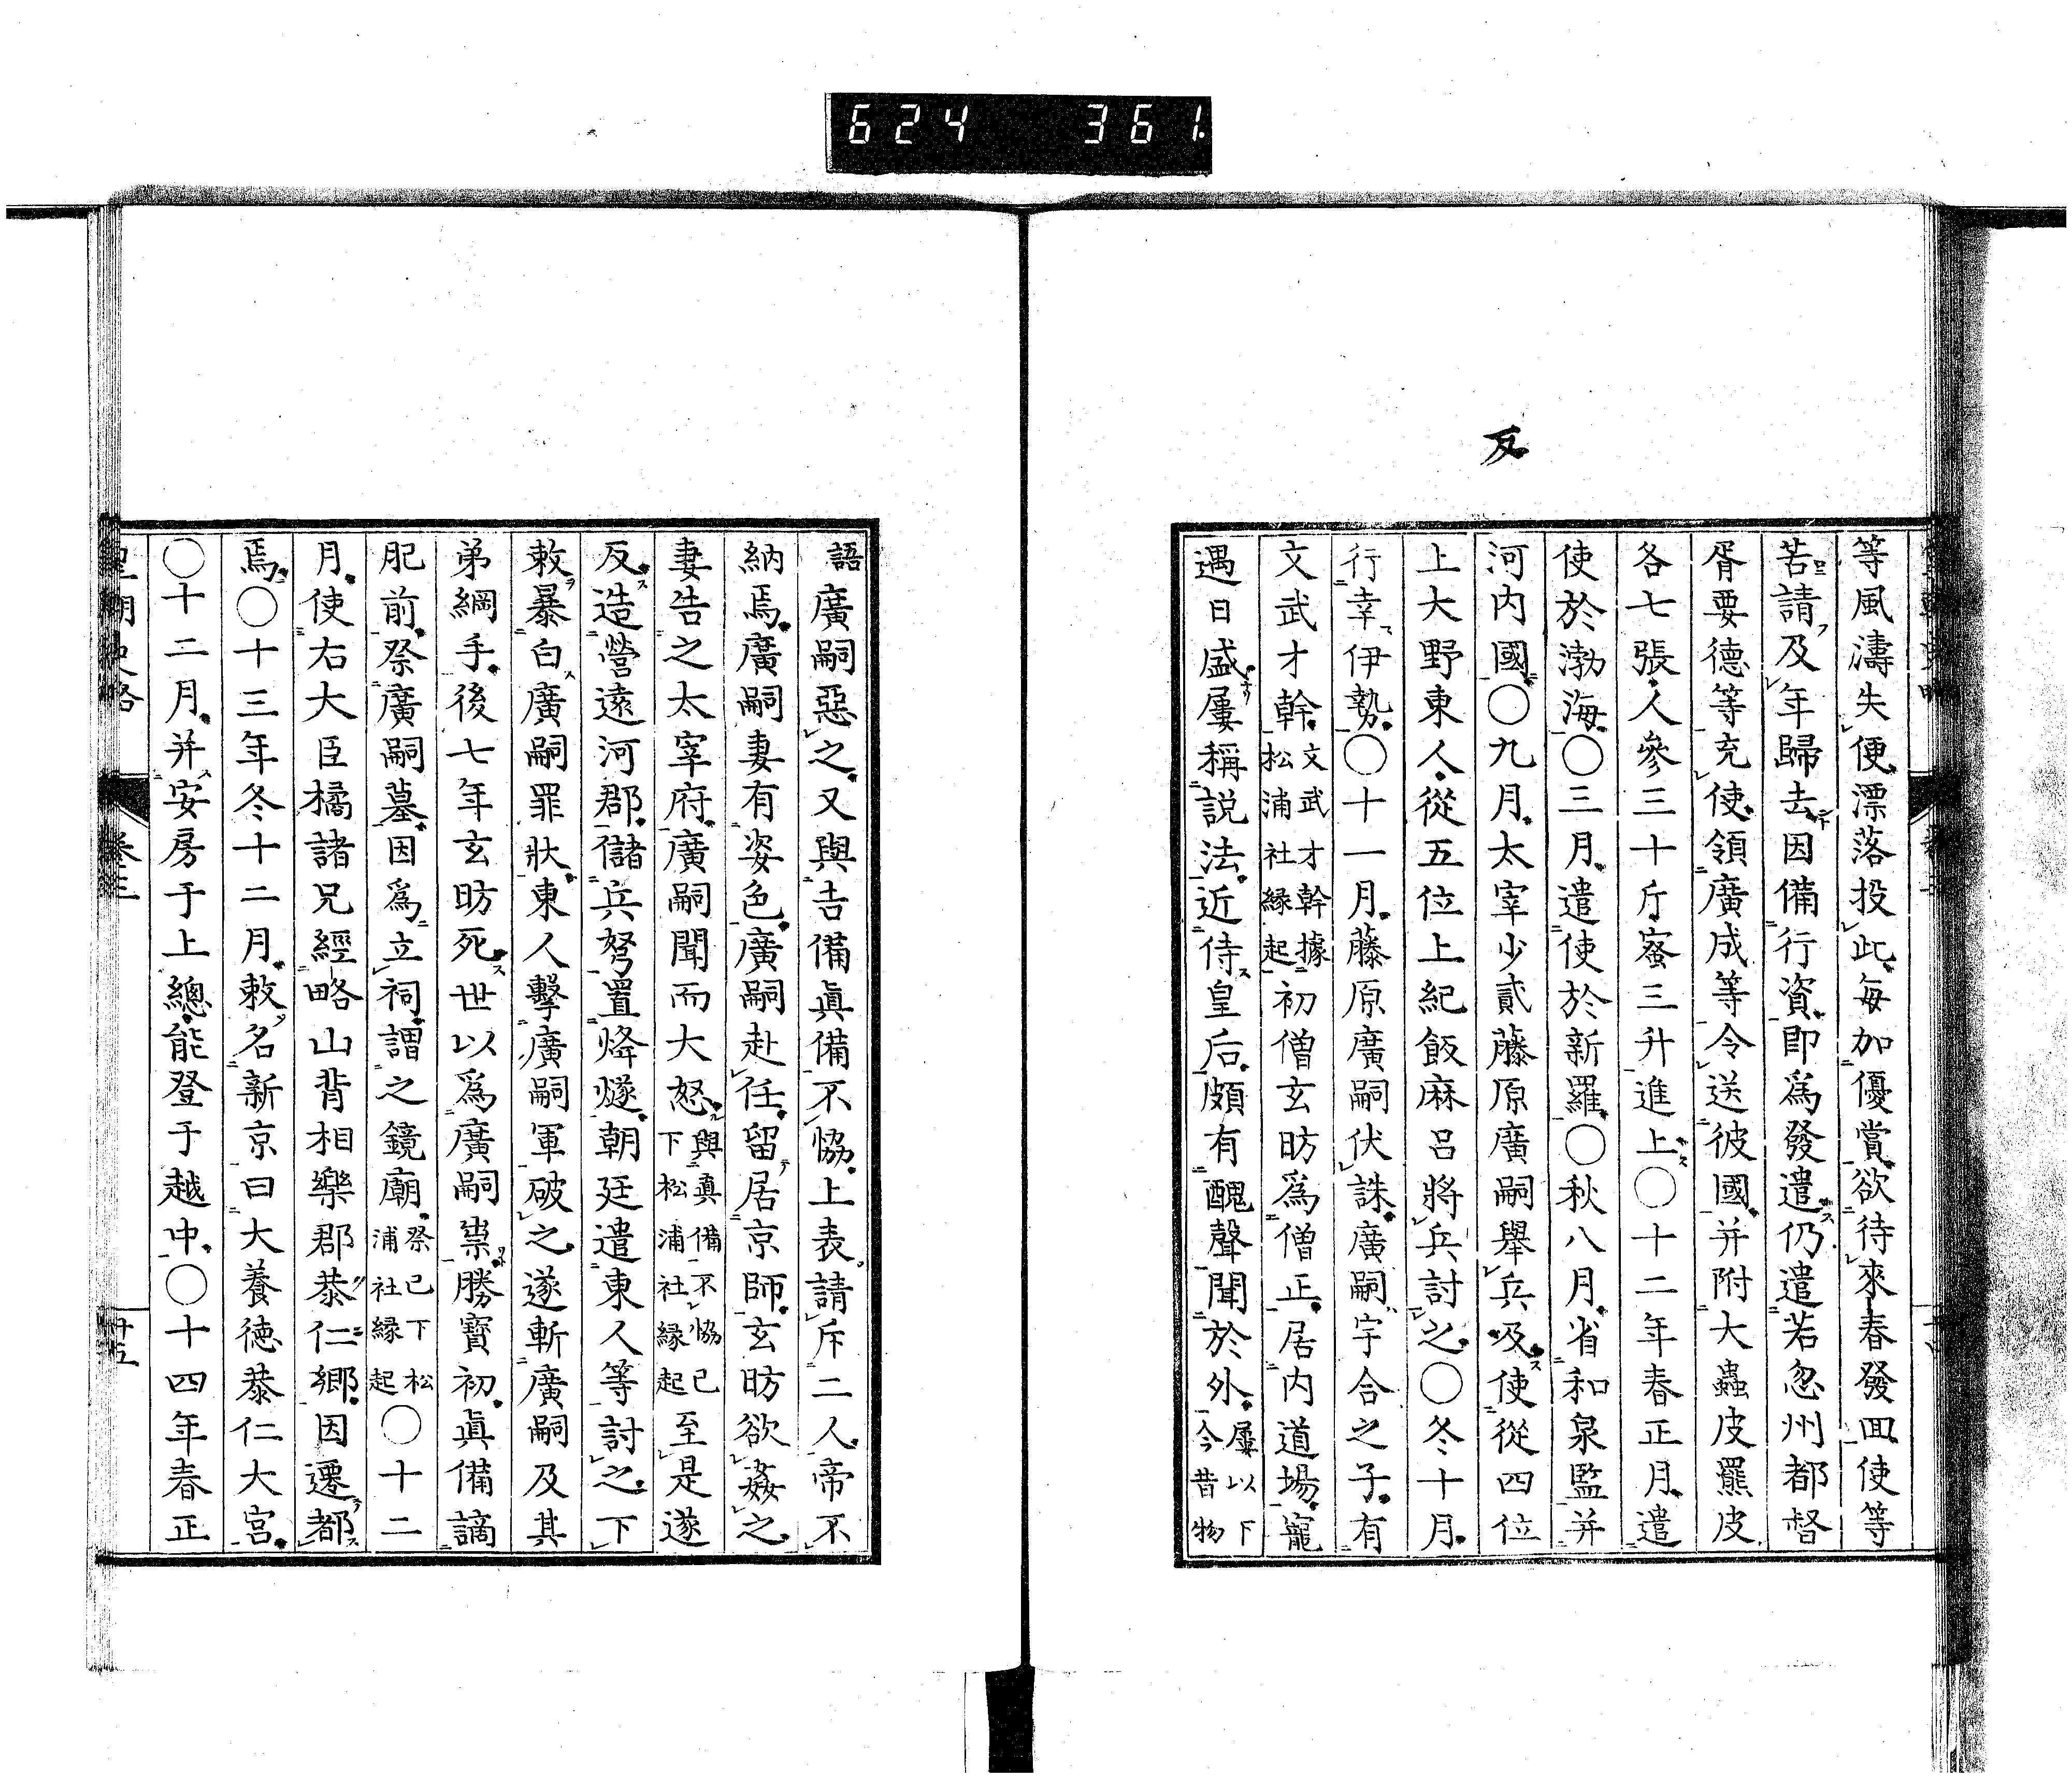 624 361
反
等風濤失便漂落投此每加優賞欲待來春發回使等
苦請及年歸去因備行資即爲發遣仍遣若忽州都督
胥要德等充使領廣成等令送彼國并附大蟲皮羆皮
各七張人參三十斤蜜三升進上〇十二年春正月遣
使於渤海〇三月遣使於新羅〇秋八月省和泉監并
河内國〇九月太宰少貳藤原廣嗣舉兵反使從四位
上大野東人從五位上紀飯麻呂將兵討之〇冬十月
行幸伊勢〇十一月藤原廣嗣伏誅廣嗣宇合之子有
文武才幹文武才幹據松浦社縁起初僧玄昉爲僧正居内道場寵
遇日盛屢稱説法近侍皇后頗有醜聲聞於外屢以下今昔物
語廣嗣惡之又與吉備眞備不協上表請斥二人帝不
納焉廣嗣妻有姿色廣嗣赴任留居京師玄昉欲姦之
妻告之太宰府廣嗣聞而大怒與眞備不協已下松浦社縁起至是遂
反造營遠河郡儲兵弩置烽燧朝廷遣東人等討之下
敕暴白廣嗣罪狀東人擊廣嗣軍破之遂斬廣嗣及其
弟綱手後七年玄昉死世以爲廣嗣祟勝寳初眞備謫
肥前祭廣嗣墓因爲立祠謂之鏡廟祭已下松浦社縁起〇十二
月使右大臣橘諸兄經略山背相樂郡恭仁郷因遷都
焉〇十三年冬十二月敕名新京曰大養徳恭仁大宮
〇十二月并安房于上總能登于越中〇十四年春正
皇朝史略 卷三 廿五